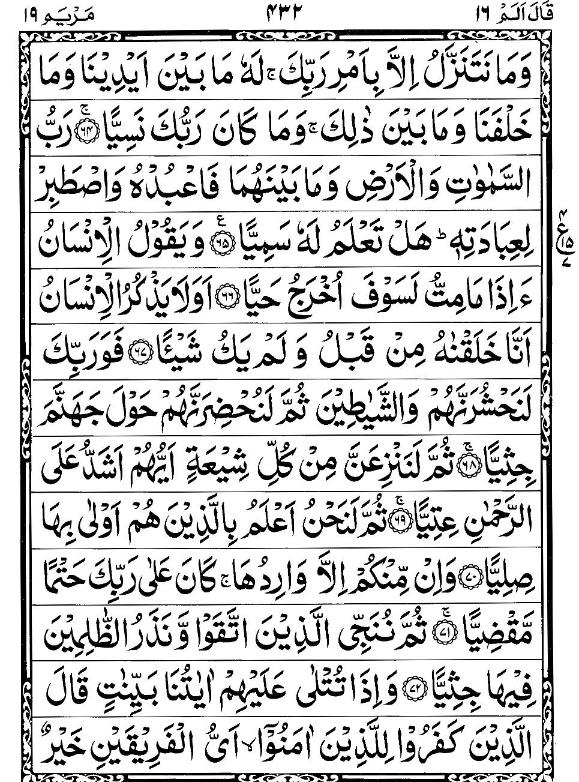 قَالَ اَلَمْ ١٦ ٤٣٢ مَرْيَم ١٩
وَمَا نَتَنَزَّلُ اِلَّا بِاَمْرِ رَبِّكَ ۚ لَهٗ مَا بَيْنَ اَيْدِيْنَا وَمَا
خَلْفَنَا وَمَا بَيْنَ ذٰلِكَ ۚ وَمَا كَانَ رَبُّكَ نَسِيًّا ۚ ﴿٦٤﴾ رَبُّ
السَّمٰوٰتِ وَالْاَرْضِ وَمَا بَيْنَهُمَا فَاعْبُدْهُ وَاصْطَبِرْ
لِعِبَادَتِهٖ ؕ هَلْ تَعْلَمُ لَهٗ سَمِيًّا ﴿٦٥﴾ ع وَيَقُوْلُ الْاِنْسَانُ
ءَاِذَا مَامِتُّ لَسَوْفَ اُخْرَجُ حَيًّا ﴿٦٦﴾ اَوَلَا يَذْكُرُ الْاِنْسَانُ
اَنَّا خَلَقْنٰهُ مِنْ قَبْلُ وَلَمْ يَكُ شَيْـًٔا ﴿٦٧﴾ فَوَرَبِّكَ
لَنَحْشُرَنَّهُمْ وَالشَّيٰطِيْنَ ثُمَّ لَنُحْضِرَنَّهُمْ حَوْلَ جَهَنَّمَ
جِثِيًّا ۚ ﴿٦٨﴾ ثُمَّ لَنَنْزِعَنَّ مِنْ كُلِّ شِيْعَةٍ اَيُّهُمْ اَشَدُّ عَلَى
الرَّحْمٰنِ عِتِيًّا ۚ ﴿٦٩﴾ ثُمَّ لَنَحْنُ اَعْلَمُ بِالَّذِيْنَ هُمْ اَوْلٰى بِهَا
صِلِيًّا ﴿٧٠﴾ وَاِنْ مِّنْكُمْ اِلَّا وَارِدُهَا ۚ كَانَ عَلٰى رَبِّكَ حَتْمًا
مَّقْضِيًّا ۚ ﴿٧١﴾ ثُمَّ نُنَجِّى الَّذِيْنَ اتَّقَوْا وَّنَذَرُ الظّٰلِمِيْنَ
فِيْهَا جِثِيًّا ﴿٧٢﴾ وَاِذَا تُتْلٰى عَلَيْهِمْ اٰيٰتُنَا بَيِّنٰتٍ قَالَ
الَّذِيْنَ كَفَرُوْا لِلَّذِيْنَ اٰمَنُوْٓا ۙ اَىُّ الْفَرِيْقَيْنِ خَيْرٌ
٤
ع ١٥
٧